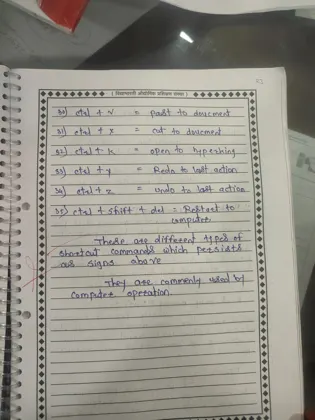 ( विश्वकर्मा औद्योगिक प्रशिक्षण संस्था )
30) ctrl + v = past to doucment
31) ctrl + x = cut to doucment
32) ctrl + k = open to hyperking
33) ctrl + y = Redo to last action
34) ctrl + z = undo to last action
35) ctrl + shift + del = Restart to
computer.
These are different types of
shortcut commands which persists
our signs above
They are commenly used by
computer operation.